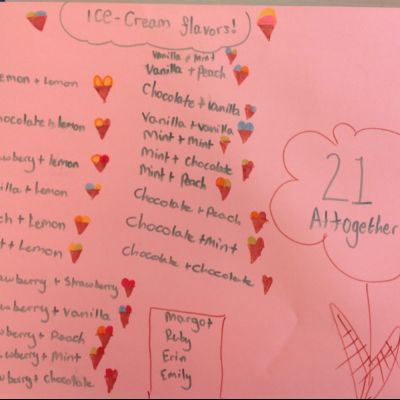 ICE-Cream flavors!
emon + Lemon
hocolate + lemon
awberry + lemon
illa + Lemon
ch + Lemon
t + Lemon
awberry + Strawberry
wberry + Vanilla
wberry + Peach
wberry + Mint
wberry + Chocolate
Vanilla + Mint
Vanilla + Peach
Chocolate + Vanilla
Vanilla + Vanilla
Mint + Mint
Mint + Chocolate
Mint + Peach
Chocolate + Peach
Chocolate + Mint
Chocolate + chocolate
Margot
Ruby
Erin
Emily
21
Altogether